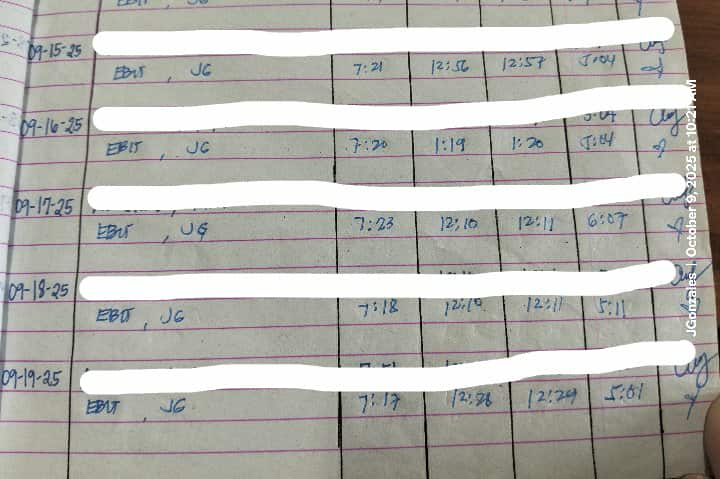 09-15-25
EBIT, JG 7:21 12:56 12:57 5:04
09-16-25
EBIT, JG 7:20 1:19 1:20 5:04
09-17-25
EBIT, JG 7:23 12:10 12:11 6:07
09-18-25
EBIT, JG 7:18 12:10 12:11 5:11
09-19-25
EBIT, JG 7:17 12:28 12:29 5:01
JGonzales | October 9, 2025 at 10:21 AM